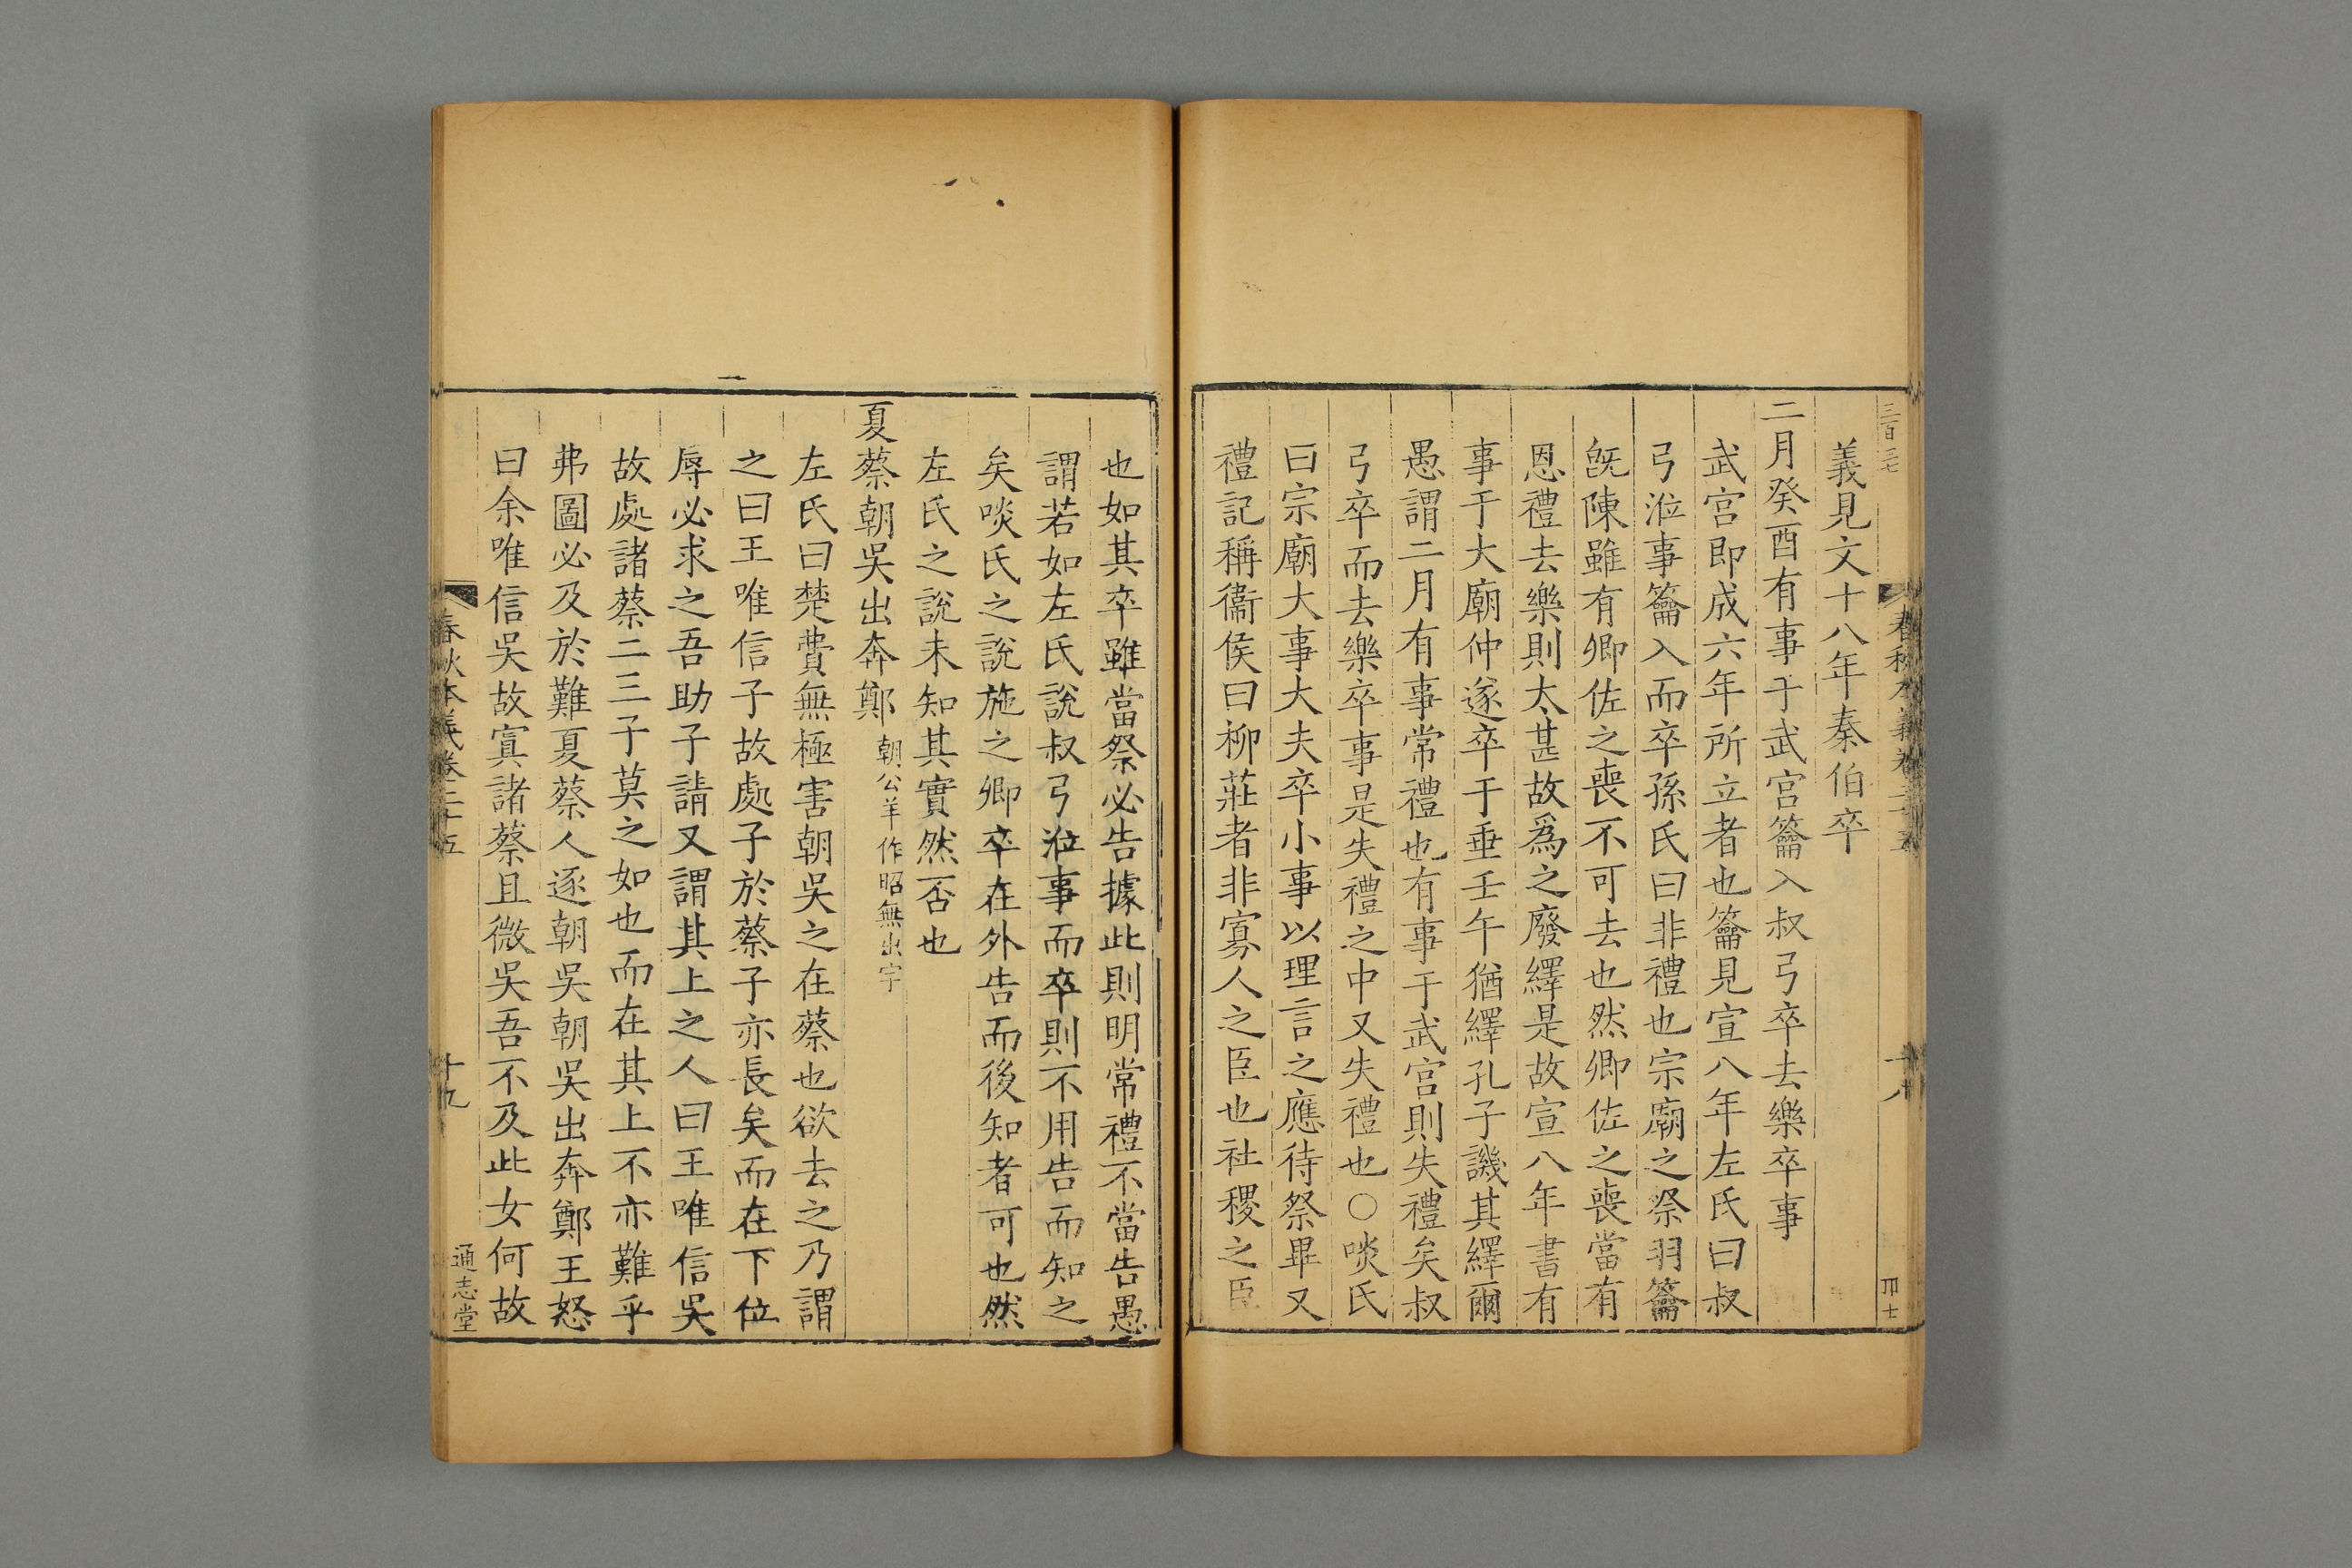 三百三七
春秋本義卷二十五
十八
義見文十八年秦伯卒
二月癸酉有事于武宮籥入叔弓卒去樂卒事
武宮即成六年所立者也籥見宣八年左氏曰叔
弓涖事籥入而卒孫氏曰非禮也宗廟之祭羽籥
旣陳雖有卿佐之喪不可去也然卿佐之喪當有
恩禮去樂則太甚故爲之廢繹是故宣八年書有
事于大廟仲遂卒于垂壬午猶繹孔子譏其繹爾
愚謂二月有事常禮也有事于武宮則失禮矣叔
弓卒而去樂卒事是失禮之中又失禮也○啖氏
曰宗廟大事大夫卒小事以理言之應待祭畢又
禮記稱衞侯曰柳莊者非寡人之臣也社稷之臣
也如其卒雖當祭必告據此則明常禮不當告愚
謂若如左氏說叔弓涖事而卒則不用告而知之
矣啖氏之說施之卿卒在外告而後知者可也然
左氏之說未知其實然否也
夏蔡朝吳出奔鄭 朝公羊作昭無出字
左氏曰楚費無極害朝吳之在蔡也欲去之乃謂
之曰王唯信子故處子於蔡子亦長矣而在下位
辱必求之吾助子請又謂其上之人曰王唯信吳
故處諸蔡二三子莫之如也而在其上不亦難乎
弗圖必及於難夏蔡人逐朝吳朝吳出奔鄭王怒
曰余唯信吳故寘諸蔡且微吳吾不及此女何故
春秋本義卷二十五
十九
通志堂